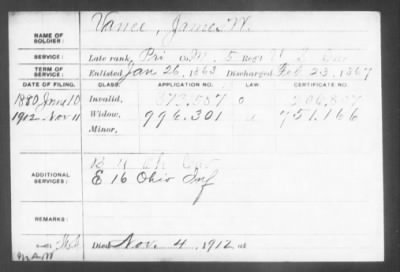 NAME OF SOLDIER: Vance, James W.
SERVICE: Late rank, Pri Co. M, 5 Reg't U.S.
TERM OF SERVICE: Enlisted Jan 26, 1863 Discharged Feb 23, 1867
DATE OF FILING. CLASS. APPLICATION NO. LAW. CERTIFICATE NO.
1880 June 10 Invalid,
1912. Nov 11 Widow, 996.301 751.166
Minor,
ADDITIONAL SERVICES:
E 16 Ohio Inf
REMARKS:
Died Nov. 4, 1912, at